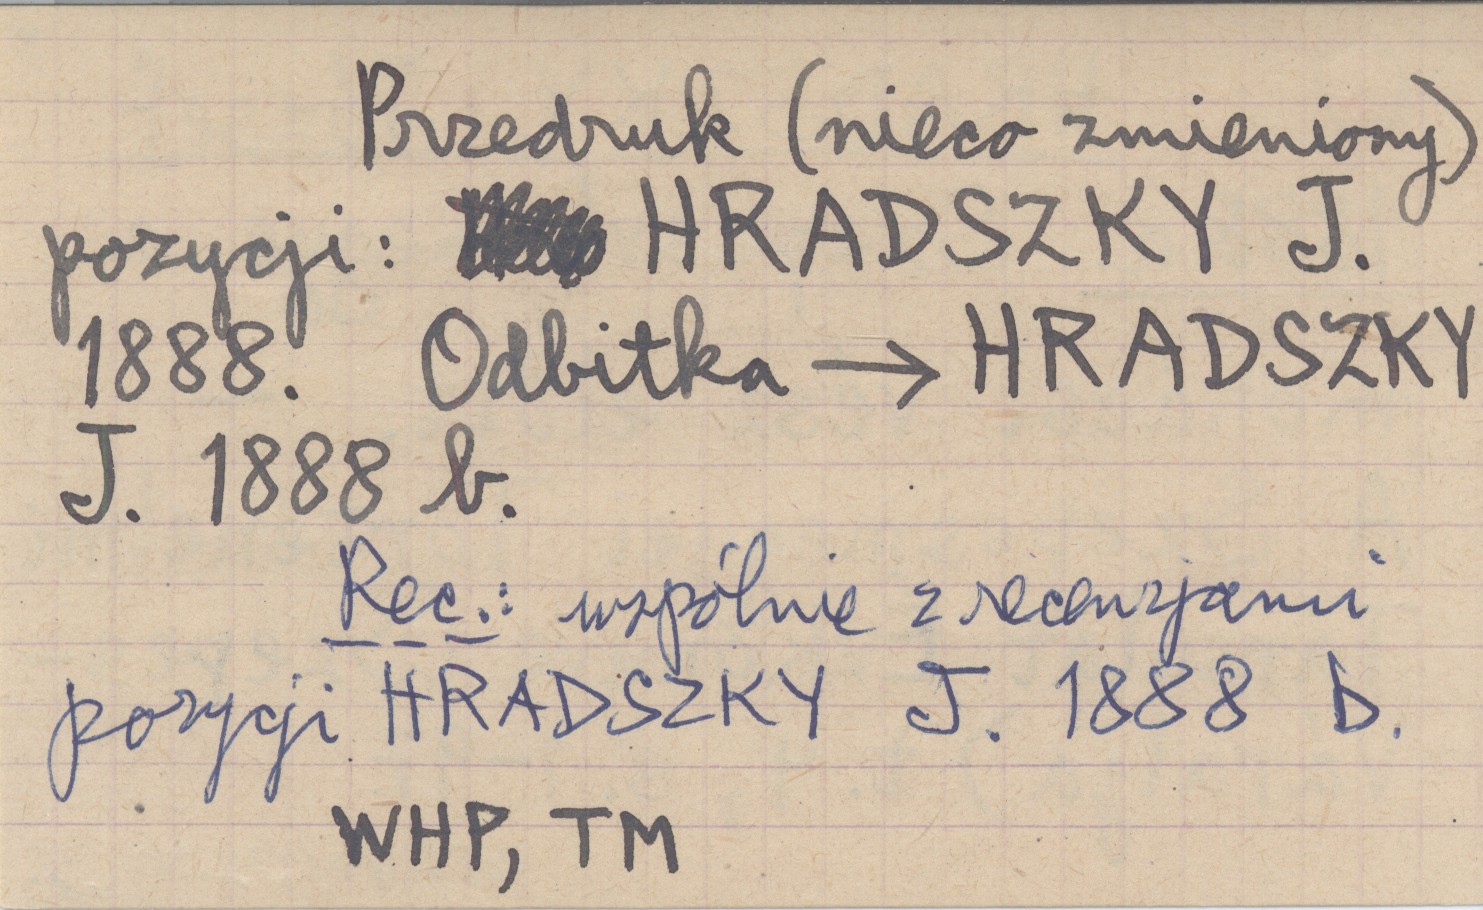 Przedruk (nieco zmieniony)
pozycji: HRADSZKY J.
1888. Odbitka → HRADSZKY
J. 1888 b.
Rec.: wspólnie z recenzjami
pozycji HRADSZKY J. 1888 b.
WHP, TM